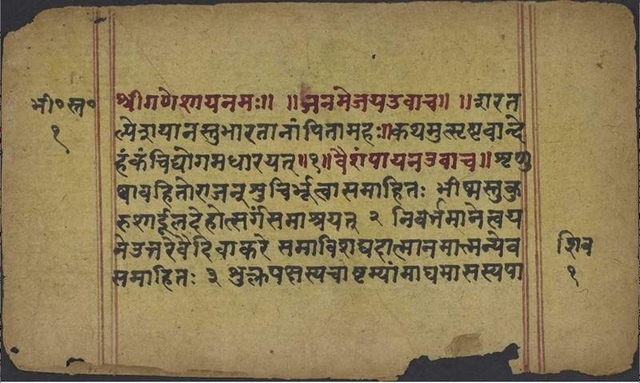 भी॰स्त॰
१
श्रीगणेशायनमः॥ ॥जनमेजयउवाच॥ ॥शरत
ल्पेशयानस्तुभारतानांपितामहः॥कथमुत्सृष्टवान्दे
हंकंचिद्योगमधारयत्॥१॥वैशंपायनउवाच॥शृणु
ष्वावहितोराजन्शुचिर्भूत्वासमाहितः भीष्मस्तुकु
रुशार्दूलदेहोत्सर्गंसमाश्रयत् २ निवर्त्तमानेत्वय
नेउत्तरेवैदिवाकरे समाविशद्यदात्मानमात्मन्येव
समाहितः ३ शुक्लपक्षस्यचाष्टम्यांमाघमासस्यपा
शिव
१